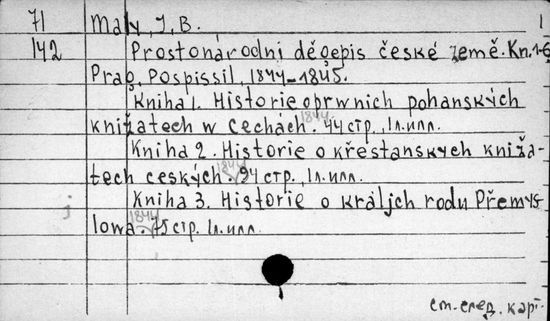 71 Malý, J. B. 1
142 Prostonárodni dĕgepis české zemĕ. Kn.1-6
Prag, Pospissil, 1844-1845.
Kniha 1. Historie oprwnich pohanských
knižatech w Cechách. 1844 44 стр., 1 л. илл.
Kniha 2. Historie o křestanskych kniža-
tech ceských. 1844 94 стр., 1 л. илл.
j Kniha 3. Historie o králjch rodu Přemys-
lowa. 1844 75 стр. 1 л. илл.
см. след. карт.